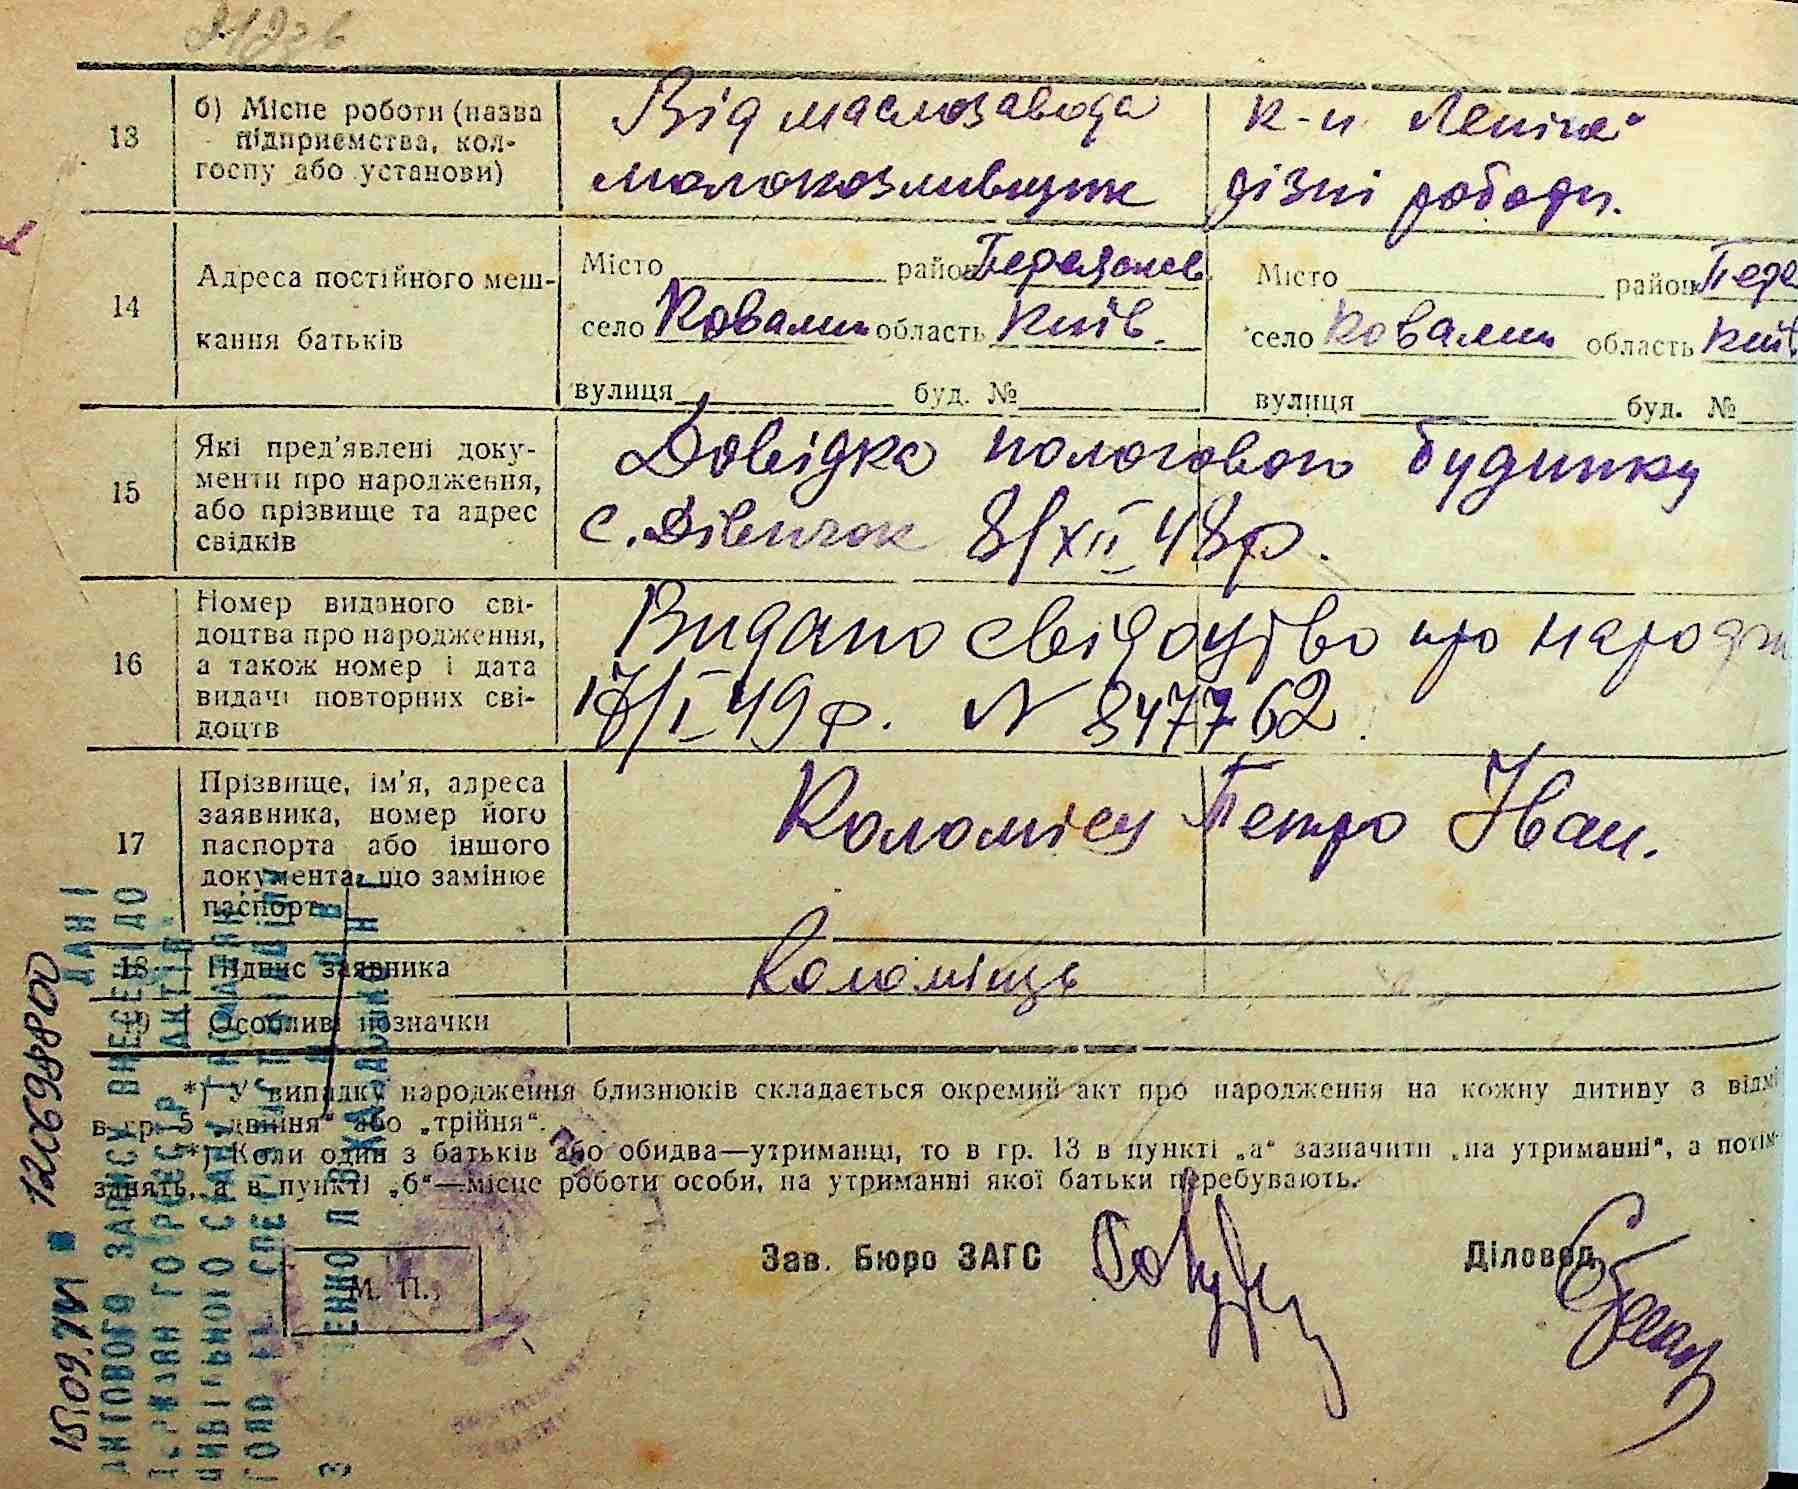 13
б) Місце роботи (назва
підприємства, кол-
госпу або установи)
Від маслозавода
молокозливщик
к-п Леніна
різні роботи.
14
Адреса постійного меш-
кання батьків
Місто район Переяслов
село Ковалин область Київ.
вулиця буд. №
Місто район Пере
село Ковалин область Київ
вулиця буд. №
15
Які пред'явлені доку-
менти про народження,
або прізвище та адрес
свідків
Довідка пологового будинку
с. Дівичок 8/XII 48 р.
16
Номер виданого сві-
доцтва про народження,
а також номер і дата
видачі повторних сві-
доцтв
Видано свідоцтво про народж
17/I 49 р. N 847762.
17
Прізвище, ім'я, адреса
заявника, номер його
паспорта або іншого
документа, що замінює
паспорт
Коломієц Петро Іван.
18
Підпис заявника
Коломієць
19
Особливі позначки
*) У випадку народження близнюків складається окремий акт про народження на кожну дитину з відмі
в гр. 5 „двійня“ або „трійня“.
*) Коли один з батьків або обидва—утриманці, то в гр. 13 в пункті „а“ зазначити „на утриманні“, а потім
занять, а в пункті „б“—місце роботи особи, на утриманні якої батьки перебувають.
М. П.
Зав. Бюро ЗАГС
Діловод
ДАНІ
АКТОВОГО ЗАПИСУ ВНЕСЕНІ ДО
ДЕРЖАВНОГО РЕЄСТРУ АКТІВ
ЦИВІЛЬНОГО СТАНУ ГРОМАДЯН